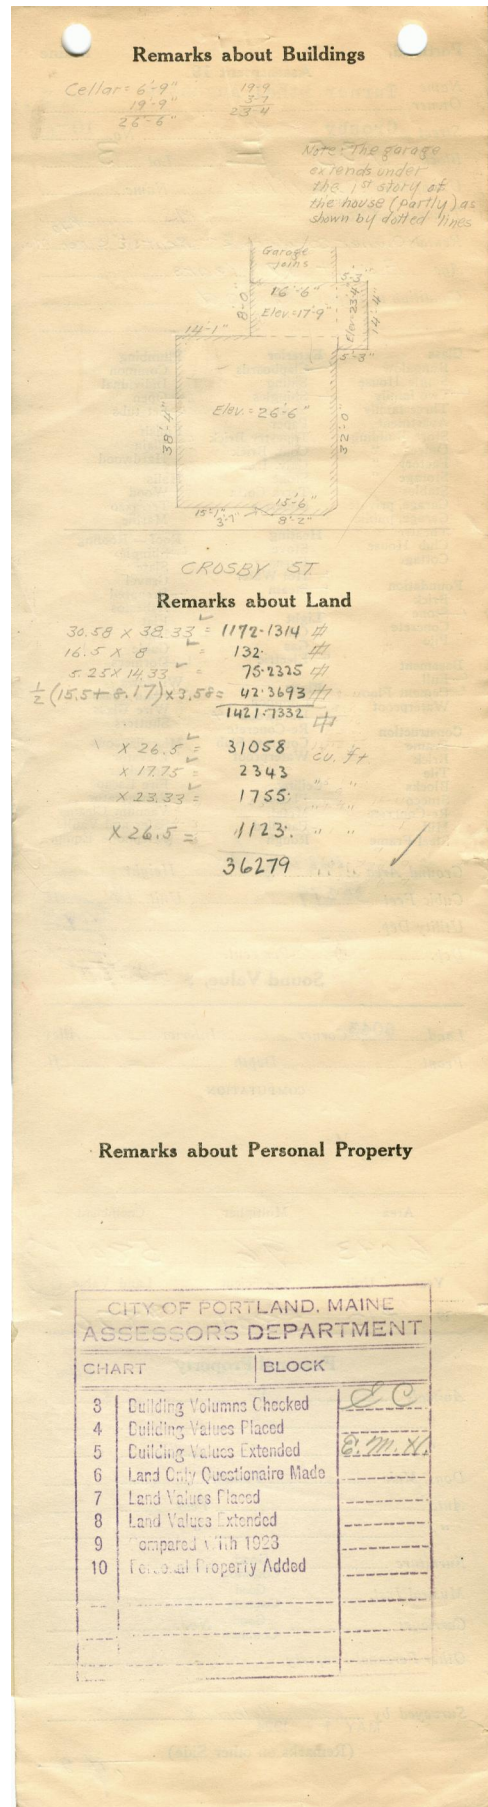 Remarks about Buildings
Cellar = 6'-9"
19'-9"
26'-6"
19-9
3-7
23-4
Note: The garage
extends under
the 1st story of
the house (partly) as
shown by dotted lines
Garage
joins
5-3
16'-6"
8'-0"
Elev=17'-9"
Elev=23'-4"
14'-4"
14'-1"
5'-3"
38'-4"
Elev. = 26'-6"
32'-0"
15'-1"
15'-6"
3'-7"
8'-2"
CROSBY ST
Remarks about Land
30.58 x 38.33 = 1172.1314
16.5 x 8 = 132.
5.25 x 14.33 = 75.2325
½ (15.5 + 8.17) x 3.58 = 42.3693
1421.7332
x 26.5 = 31058 cu. ft.
x 17.75 = 2343 " "
x 23.33 = 1755. " "
x 26.5 = 1123. " "
36279 " "
Remarks about Personal Property
CITY OF PORTLAND, MAINE
ASSESSORS DEPARTMENT
CHART BLOCK
3 Building Volumns Checked S C
4 Building Values Placed
5 Building Values Extended E. M. H.
6 Land Only Questionaire Made
7 Land Values Placed
8 Land Values Extended
9 Compared With 1923
10 Personal Property Added